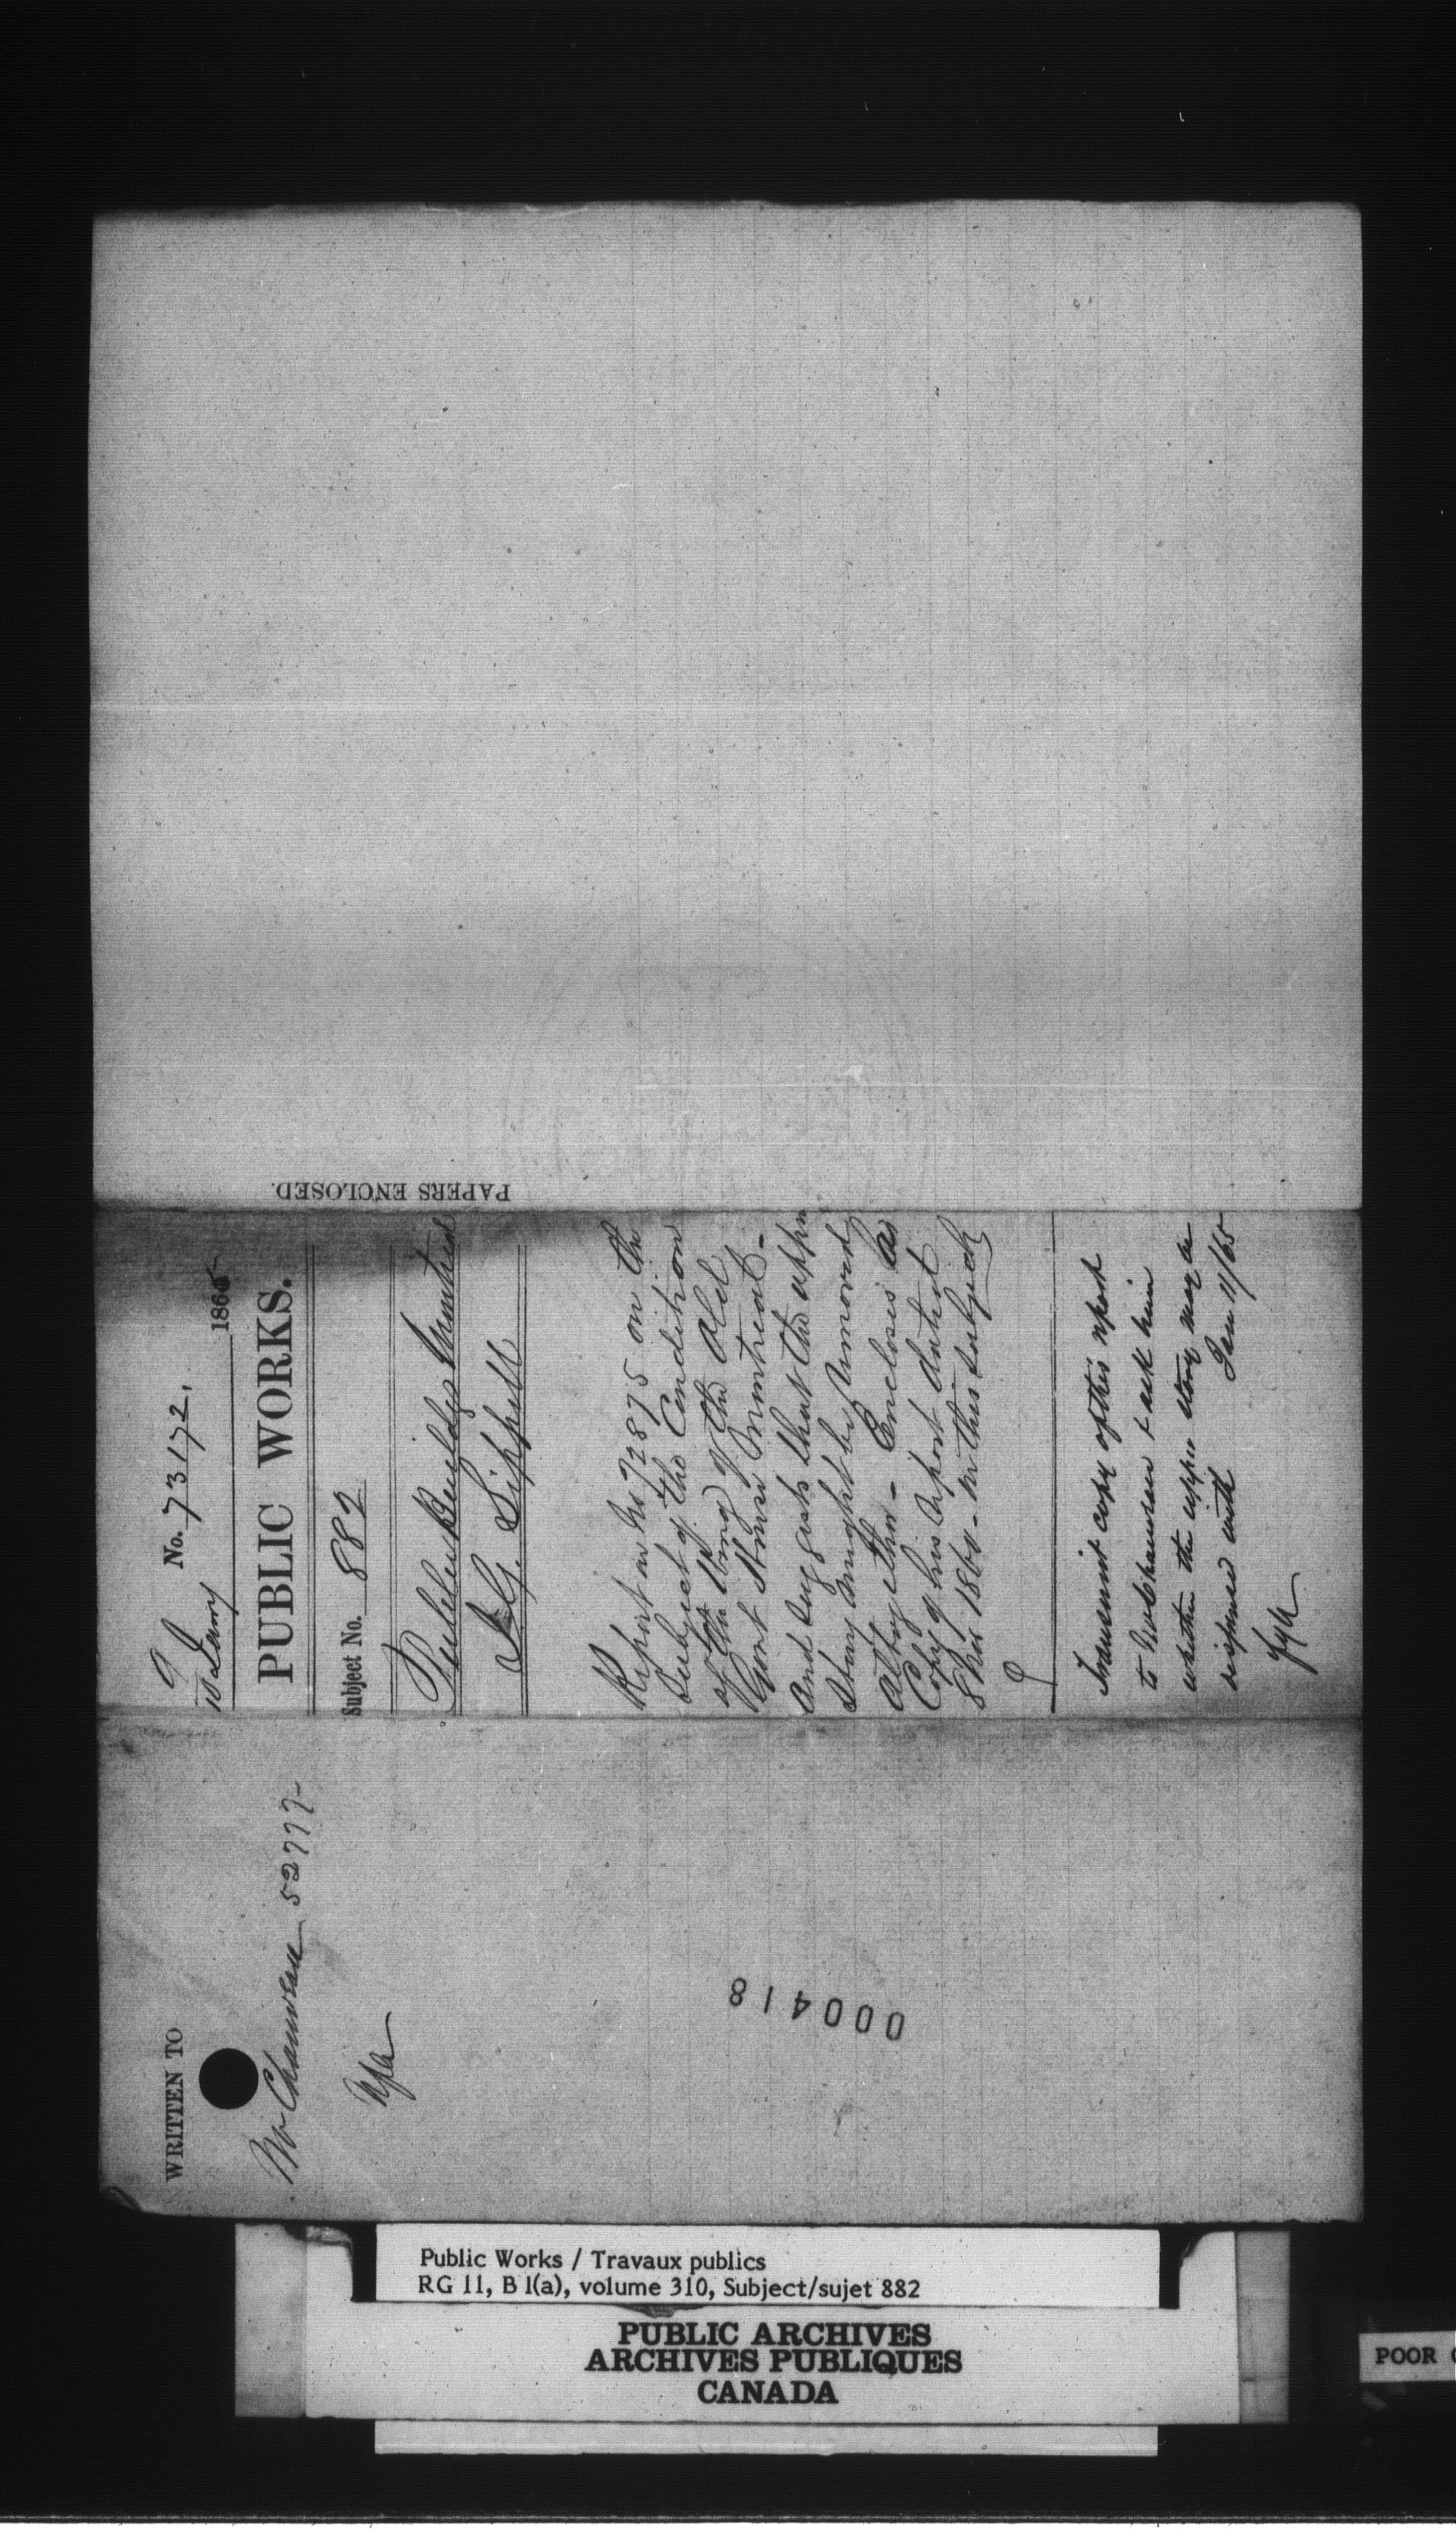 9
10 Jany No. 73172. 1865
PUBLIC WORKS.
Subject No. 882
Public Buildgs Montreal
J G. Sippell
Report on No 72875 on the
Subject of the Condition
of the Wing of the Old
Govt House Montreal -
And Suggests that the upper
Story might be removed
altogether - Encloses as
Copy of his report dated
8 Nov 1860 - on this subject
Transmit copy of this report
to Mr Chauveau & ask him
whether the upper story may be
dispensed with Jan 11/65
PAPERS ENCLOSED.
WRITTEN TO
Mr Chauveau 52777
000418
Public Works / Travaux publics
RG 11, B 1(a), volume 310, Subject/sujet 882
PUBLIC ARCHIVES
ARCHIVES PUBLIQUES
CANADA
POOR